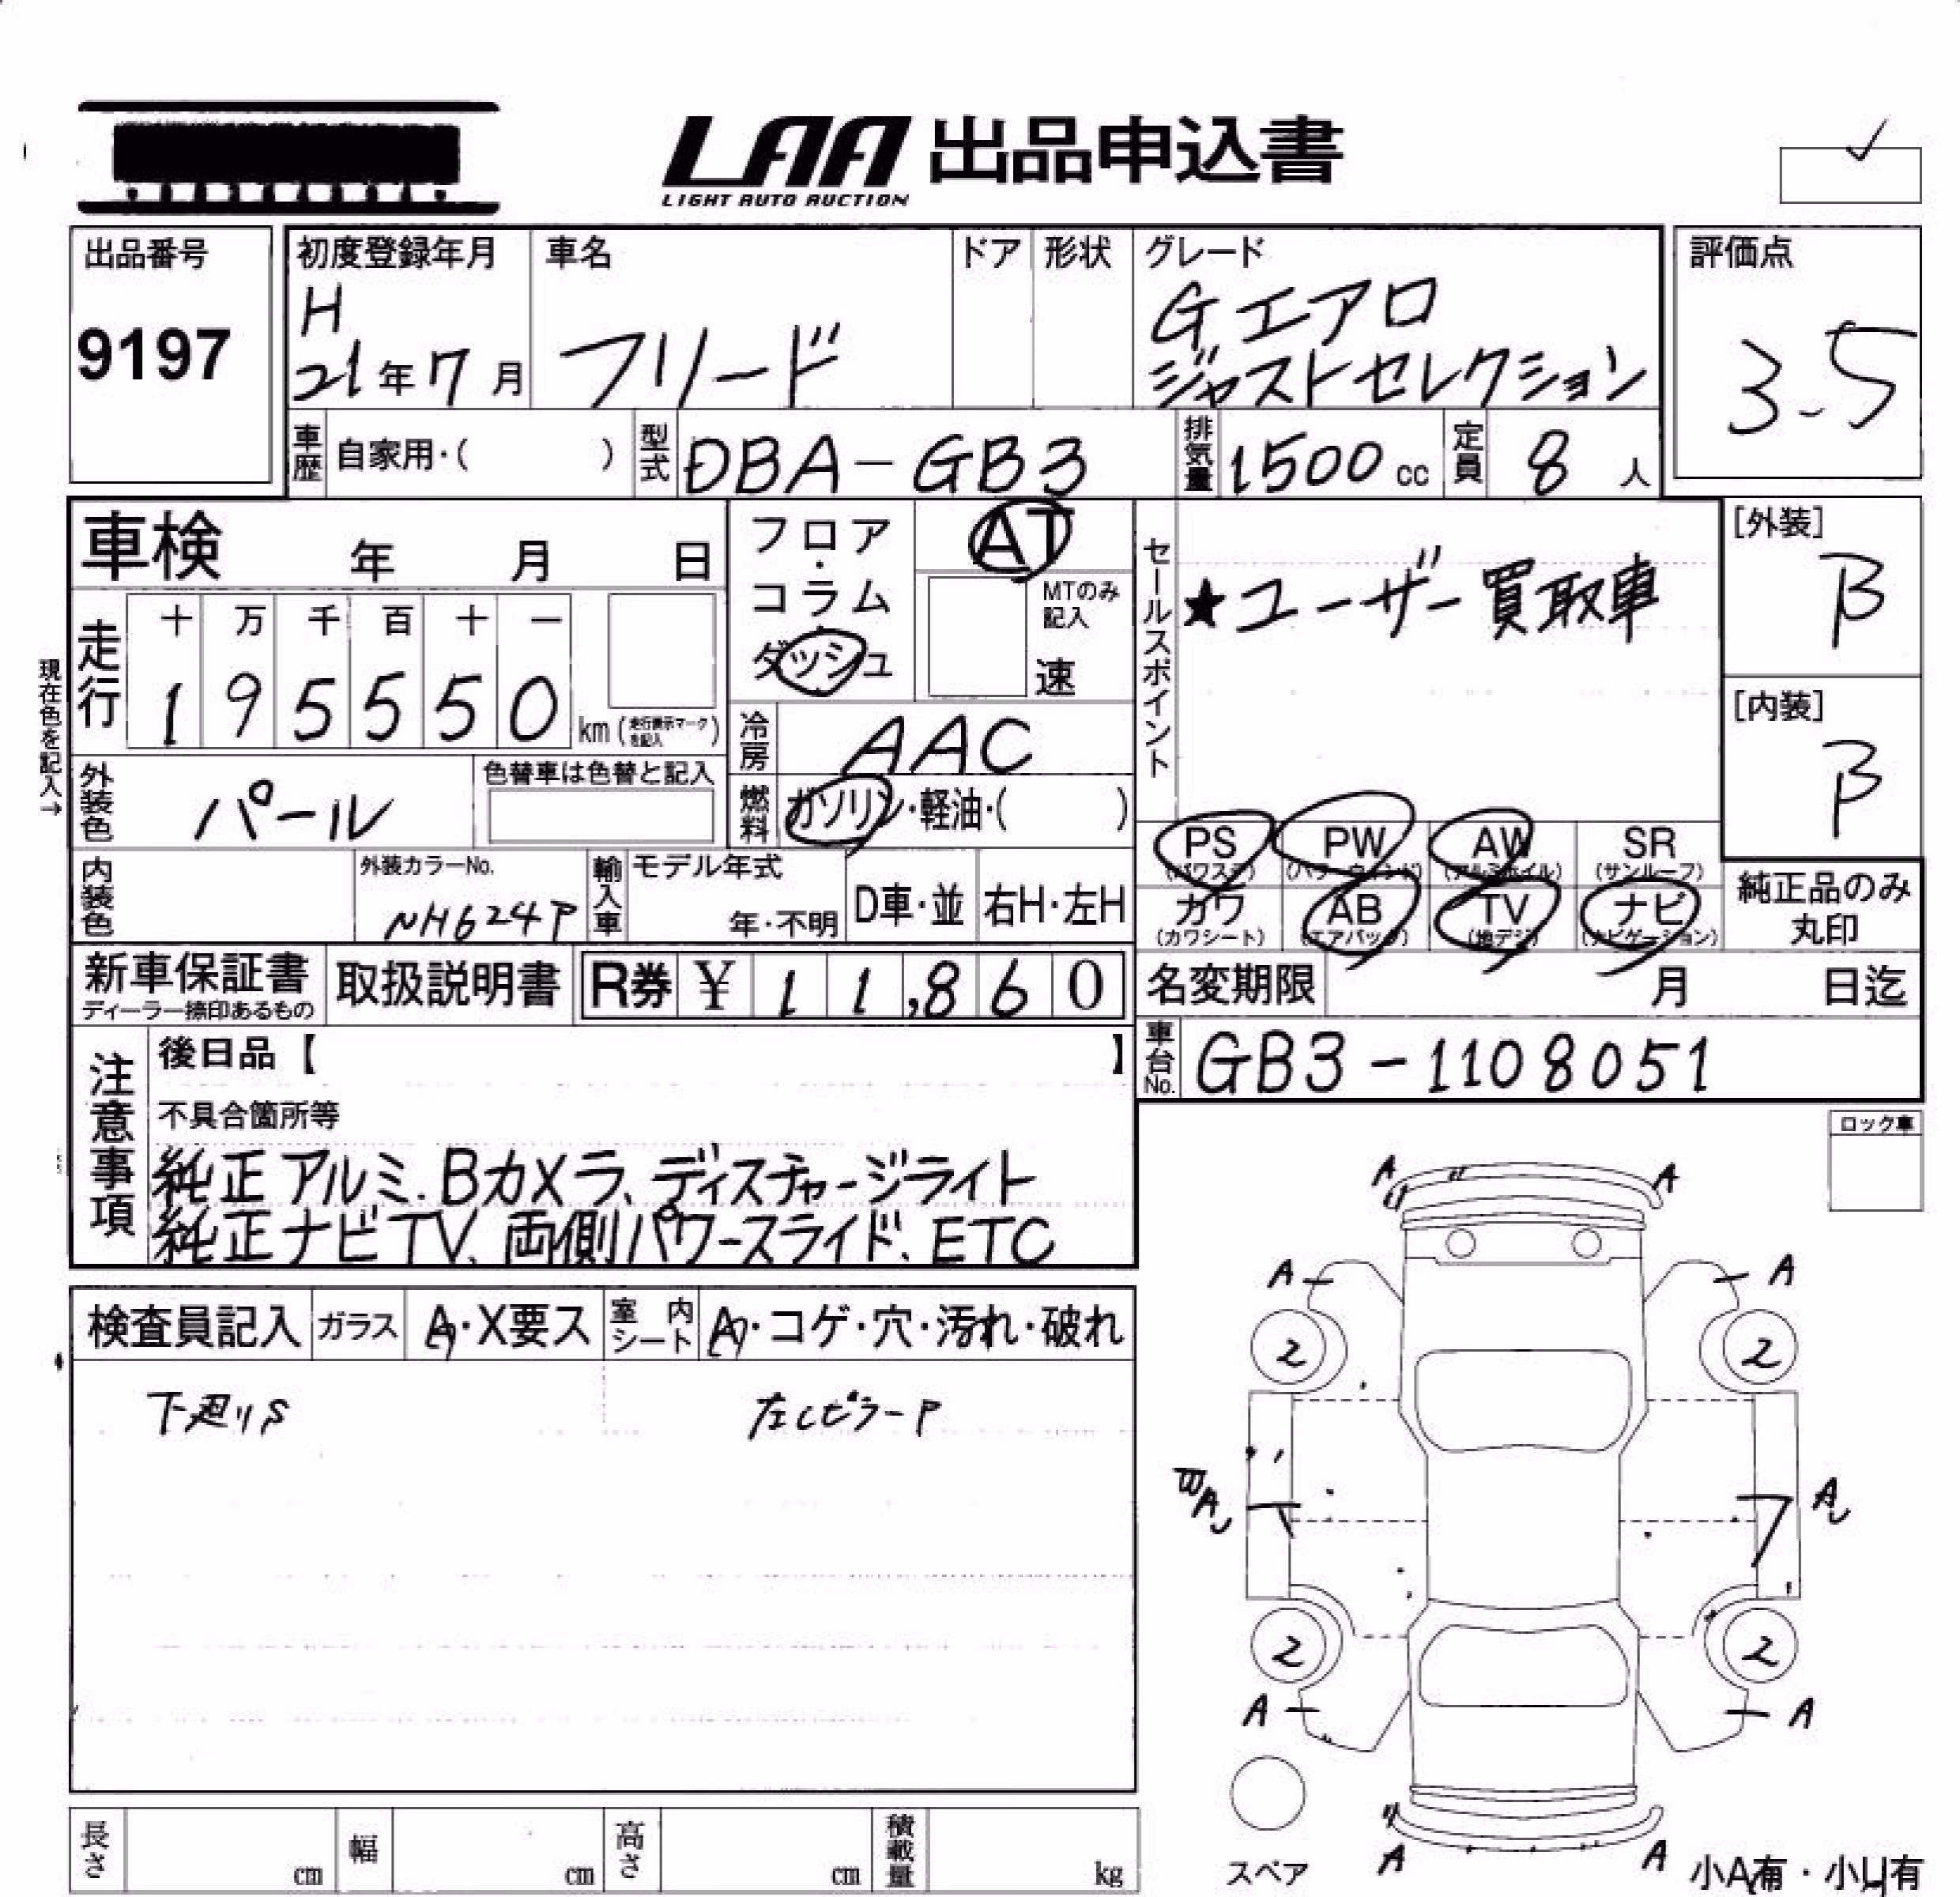 LAA 出品申込書
LIGHT AUTO AUCTION
出品番号
9197
初度登録年月
H
21年7月
車名
フリード
ドア
形状
グレード
Gエアロ
ジャストセレクション
評価点
3.5
車歴 自家用・( )
型式 DBA-GB3
排気量 1500 cc
定員 8 人
車検 年 月 日
フロア・コラム・ダッシュ
AT
MTのみ記入
速
セールスポイント
★ユーザー買取車
[外装]
B
[内装]
B
現在色を記入→
走行
十 万 千 百 十 一
1 9 5 5 5 0 km (走行表示マークを記入)
冷房 AAC
外装色 パール
色替車は色替と記入
燃料 ガソリン・軽油・( )
PS (パワステ)
PW (パワーウィンド)
AW (アルミホイル)
SR (サンルーフ)
カワ (カワシート)
AB (エアバック)
TV (地デジ)
ナビ (ナビゲーション)
純正品のみ
丸印
内装色
外装カラーNo.
NH624P
輸入車
モデル年式
年・不明
D車・並
右H・左H
新車保証書
ディーラー捺印あるもの
取扱説明書
R券 ¥ 1 1,8 6 0
名変期限 月 日迄
車台No. GB3-1108051
注意事項
後日品【 】
不具合箇所等
純正アルミ.Bカメラ、ディスチャージライト
純正ナビTV、両側パワースライド、ETC
ロック車
検査員記入
ガラス A・X要ス
室内シート A・コゲ・穴・汚れ・破れ
下廻りS
左CピラーP
A A
A A
2 2
A A
2 2
A A
A A
スペア
小A有・小U有
長さ cm
幅 cm
高さ cm
積載量 kg